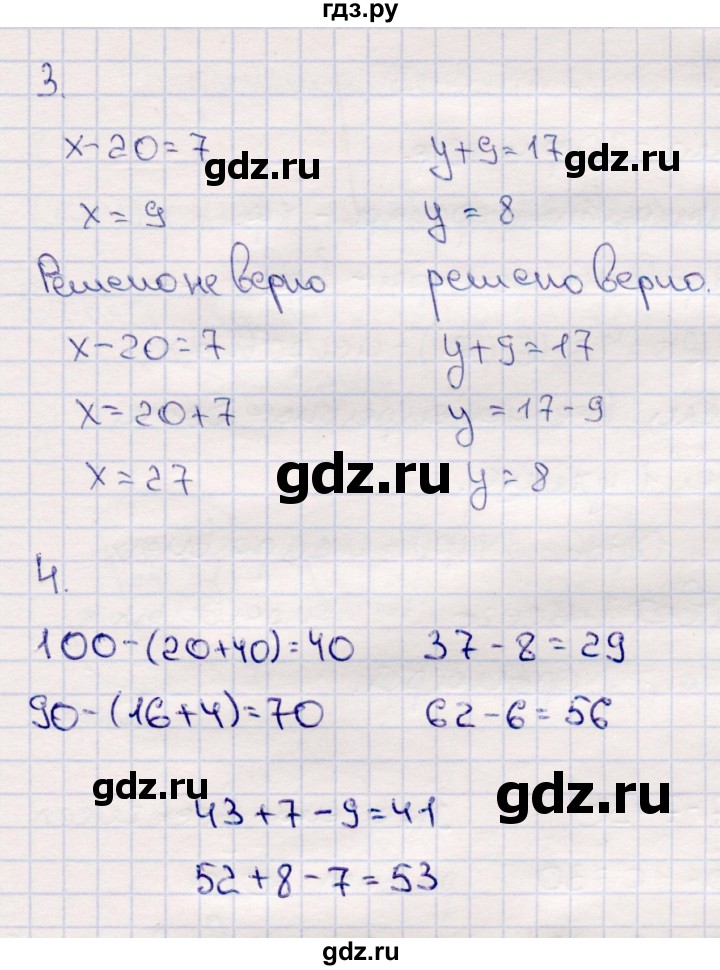 гдз.ру
3.
x-20=7 y+9=17
gdz.ru gdz.ru
x=9 y=8
Решено не верно решено верно.
x-20=7 y+9=17
x=20+7 y=17-9
gdz.ru
x=27 y=8
4.
100-(20+40)=40 37-8=29
90-(16+4)=70 62-6=56
gdz.ru gdz.ru
43+7-9=41
52+8-7=53
gdz.ru